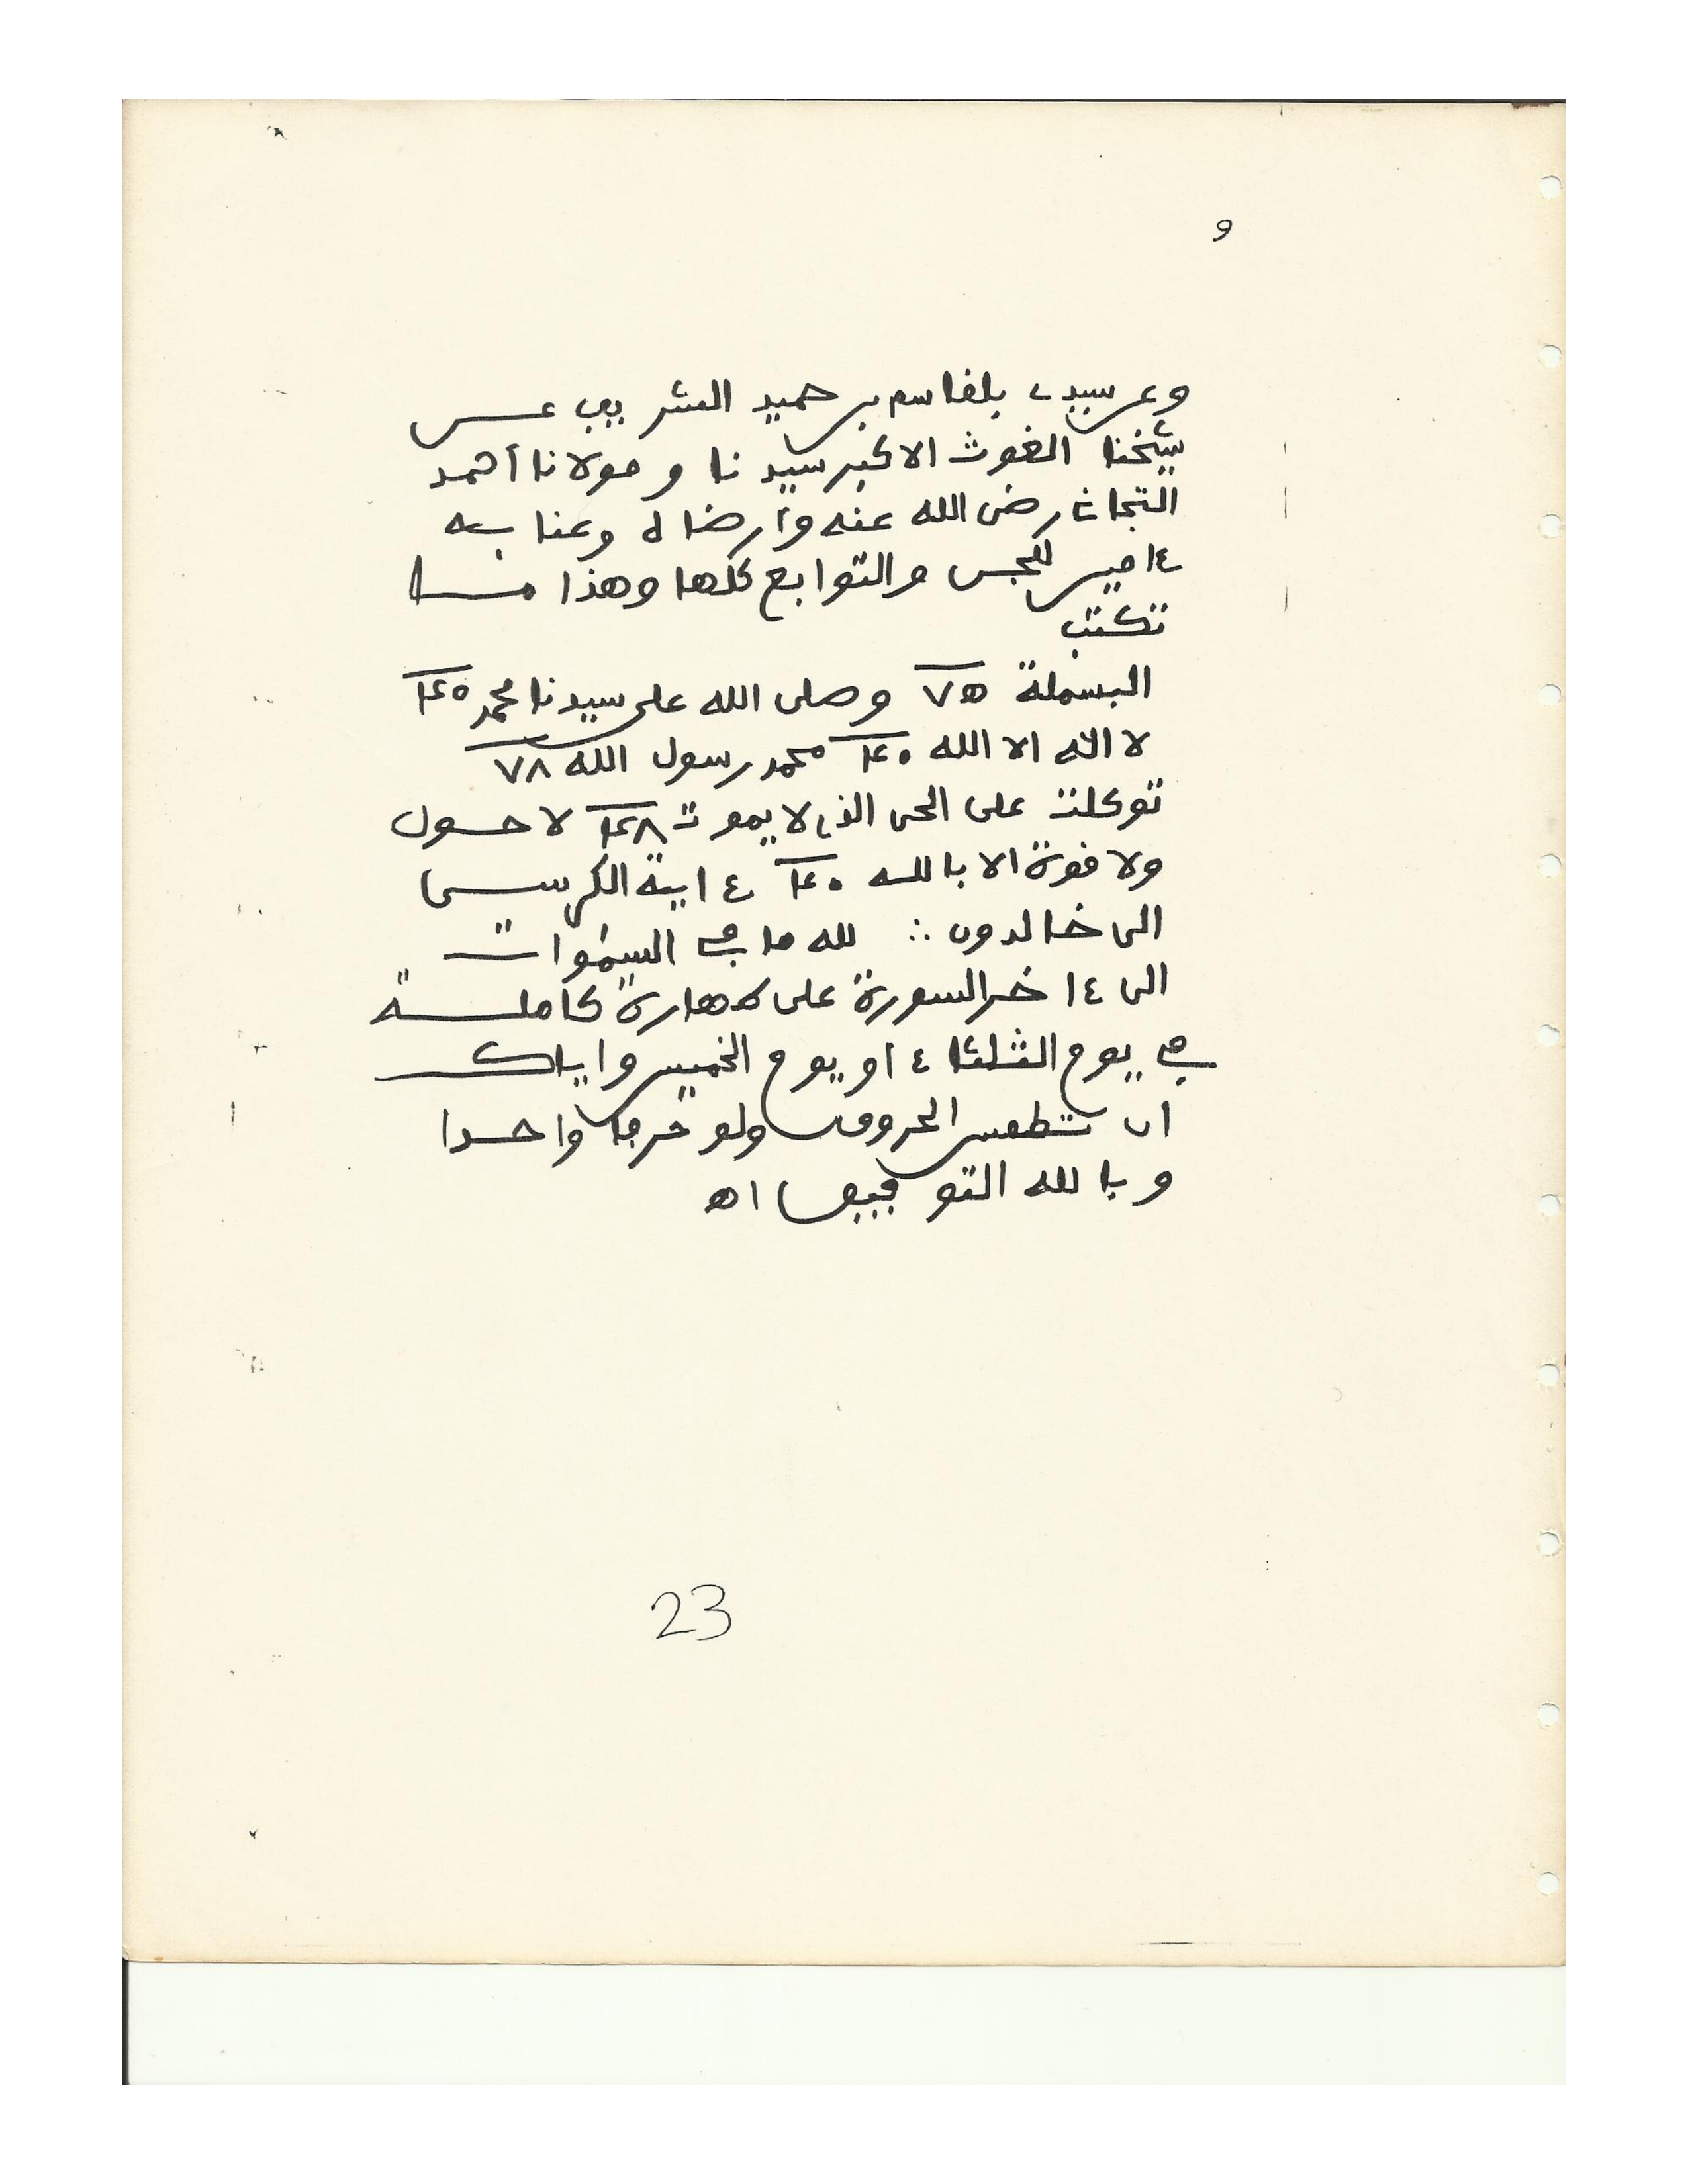 و
وعن سيدي بلقاسم بن حميد الشريف عـــن
شيخنا الغوث الاكبر سيدنا ومولانا أحمد
التجان رضى الله عنه وأرضاه وعنا به
ءامين للجن والتوابع كلها وهذا مـــا
تكتب
البسملة ٧٥ وصلى الله على سيدنا محمد
لا اله الا الله محمد رسول الله ٧٨
توكلت على الحى الذى لا يموت لا حـول
ولا قوة الا بالله ءاية الكرسـى
الى خالدون ∴ لله ما في السموات
الى ءاخر السورة على طهارة كاملـة
في يوم الثلثاء او يوم الخميس واياك
ان تطمس الحروف ولو حرفا واحـدا
وبالله التوفيق اه
23